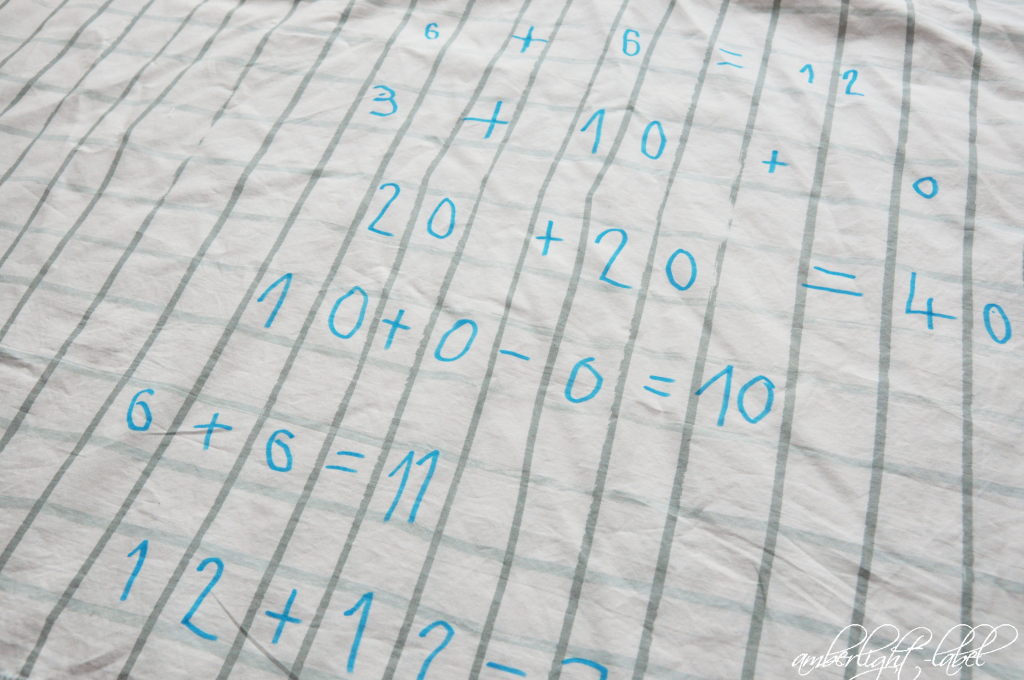 6 + 6 = 12
3 + 10 + 0
20 + 20 = 40
10 + 0 - 0 = 10
6 + 6 = 11
12 + 12 -
amberlight-label